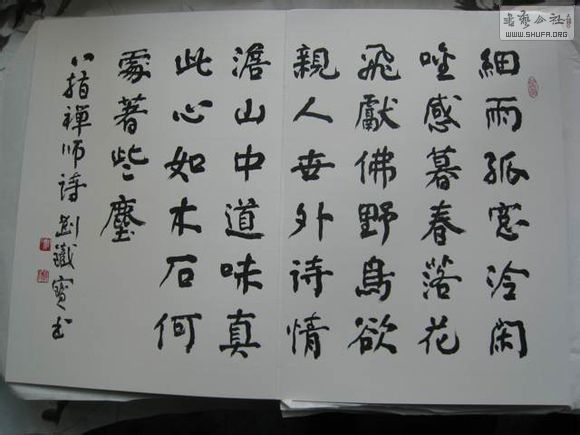 細雨孤窓冷閑
坐感暮春落花
飛獻佛野鳥欲
親人世外詩情
澹山中道味真
此心如木石何
處著些塵
八指禪师詩 刘鐵寶书
书艺公社
WWW.SHUFA.ORG